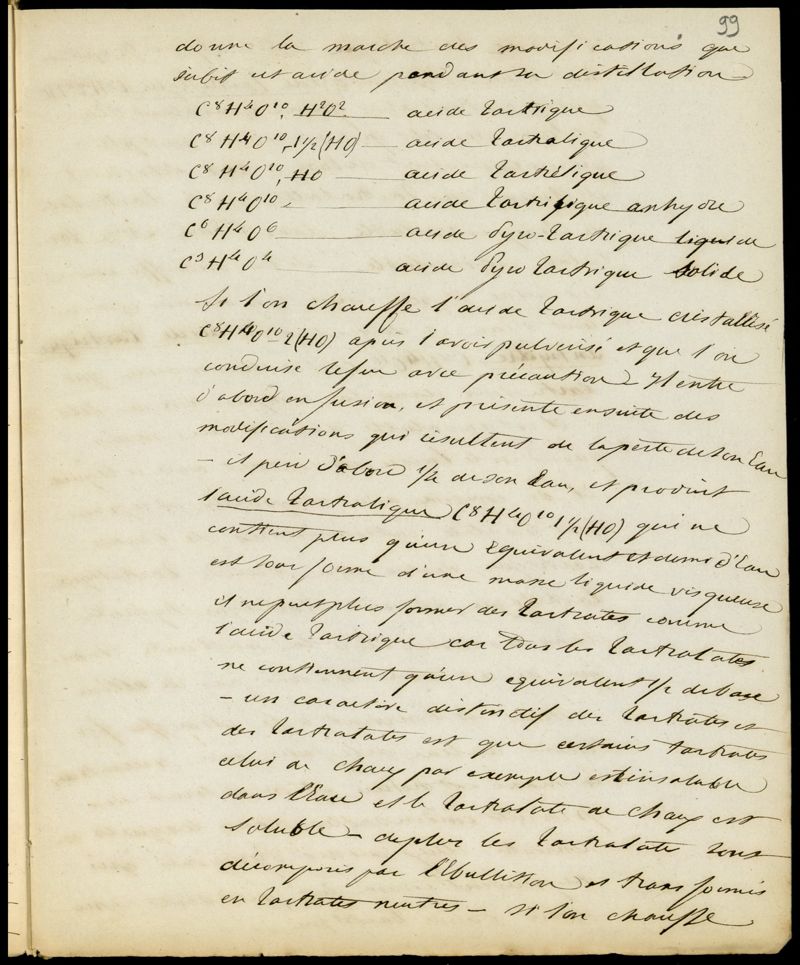 99
donne la marche des modifications que
subit cet acide pendant sa distillation
C⁸H⁴O¹⁰, H²O² — acide tartrique
C⁸H⁴O¹⁰, 1 1/2 (HO) — acide tartralique
C⁸H⁴O¹⁰, HO — acide tartrélique
C⁸H⁴O¹⁰ — acide tartrique anhydre
C⁶H⁴O⁶ — acide pyro-tartrique liquide
C⁵H⁴O⁴ — acide pyrotartrique solide
Si l'on chauffe l'acide tartrique cristallisé
C⁸H⁴O¹⁰ 2(HO) après l'avoir pulvérisé et que l'on
conduise le feu avec précaution — Il entre
d'abord en fusion, et présente ensuite des
modifications qui résultent de la perte de son Eau
— il perd d'abord 1/4 de son Eau, et produit
l'acide tartralique C⁸H⁴O¹⁰ 1 1/2 (HO) qui ne
contient plus qu'un équivalent et demi d'Eau
est sous forme d'une masse liquide visqueuse
il ne peut plus former des tartrates comme
l'acide tartrique car tous les tartralates
ne contiennent qu'un equivalent 1/2 de base
— un caractère distinctif des tartrates et
des tartralates est que certains tartrates
celui de chaux par exemple est insoluble
dans l'Eau et le tartralate de chaux est
soluble — de plus les tartralates sont
décomposés par l'Ebullition et transformés
en tartrates neutres — si l'on chauffe